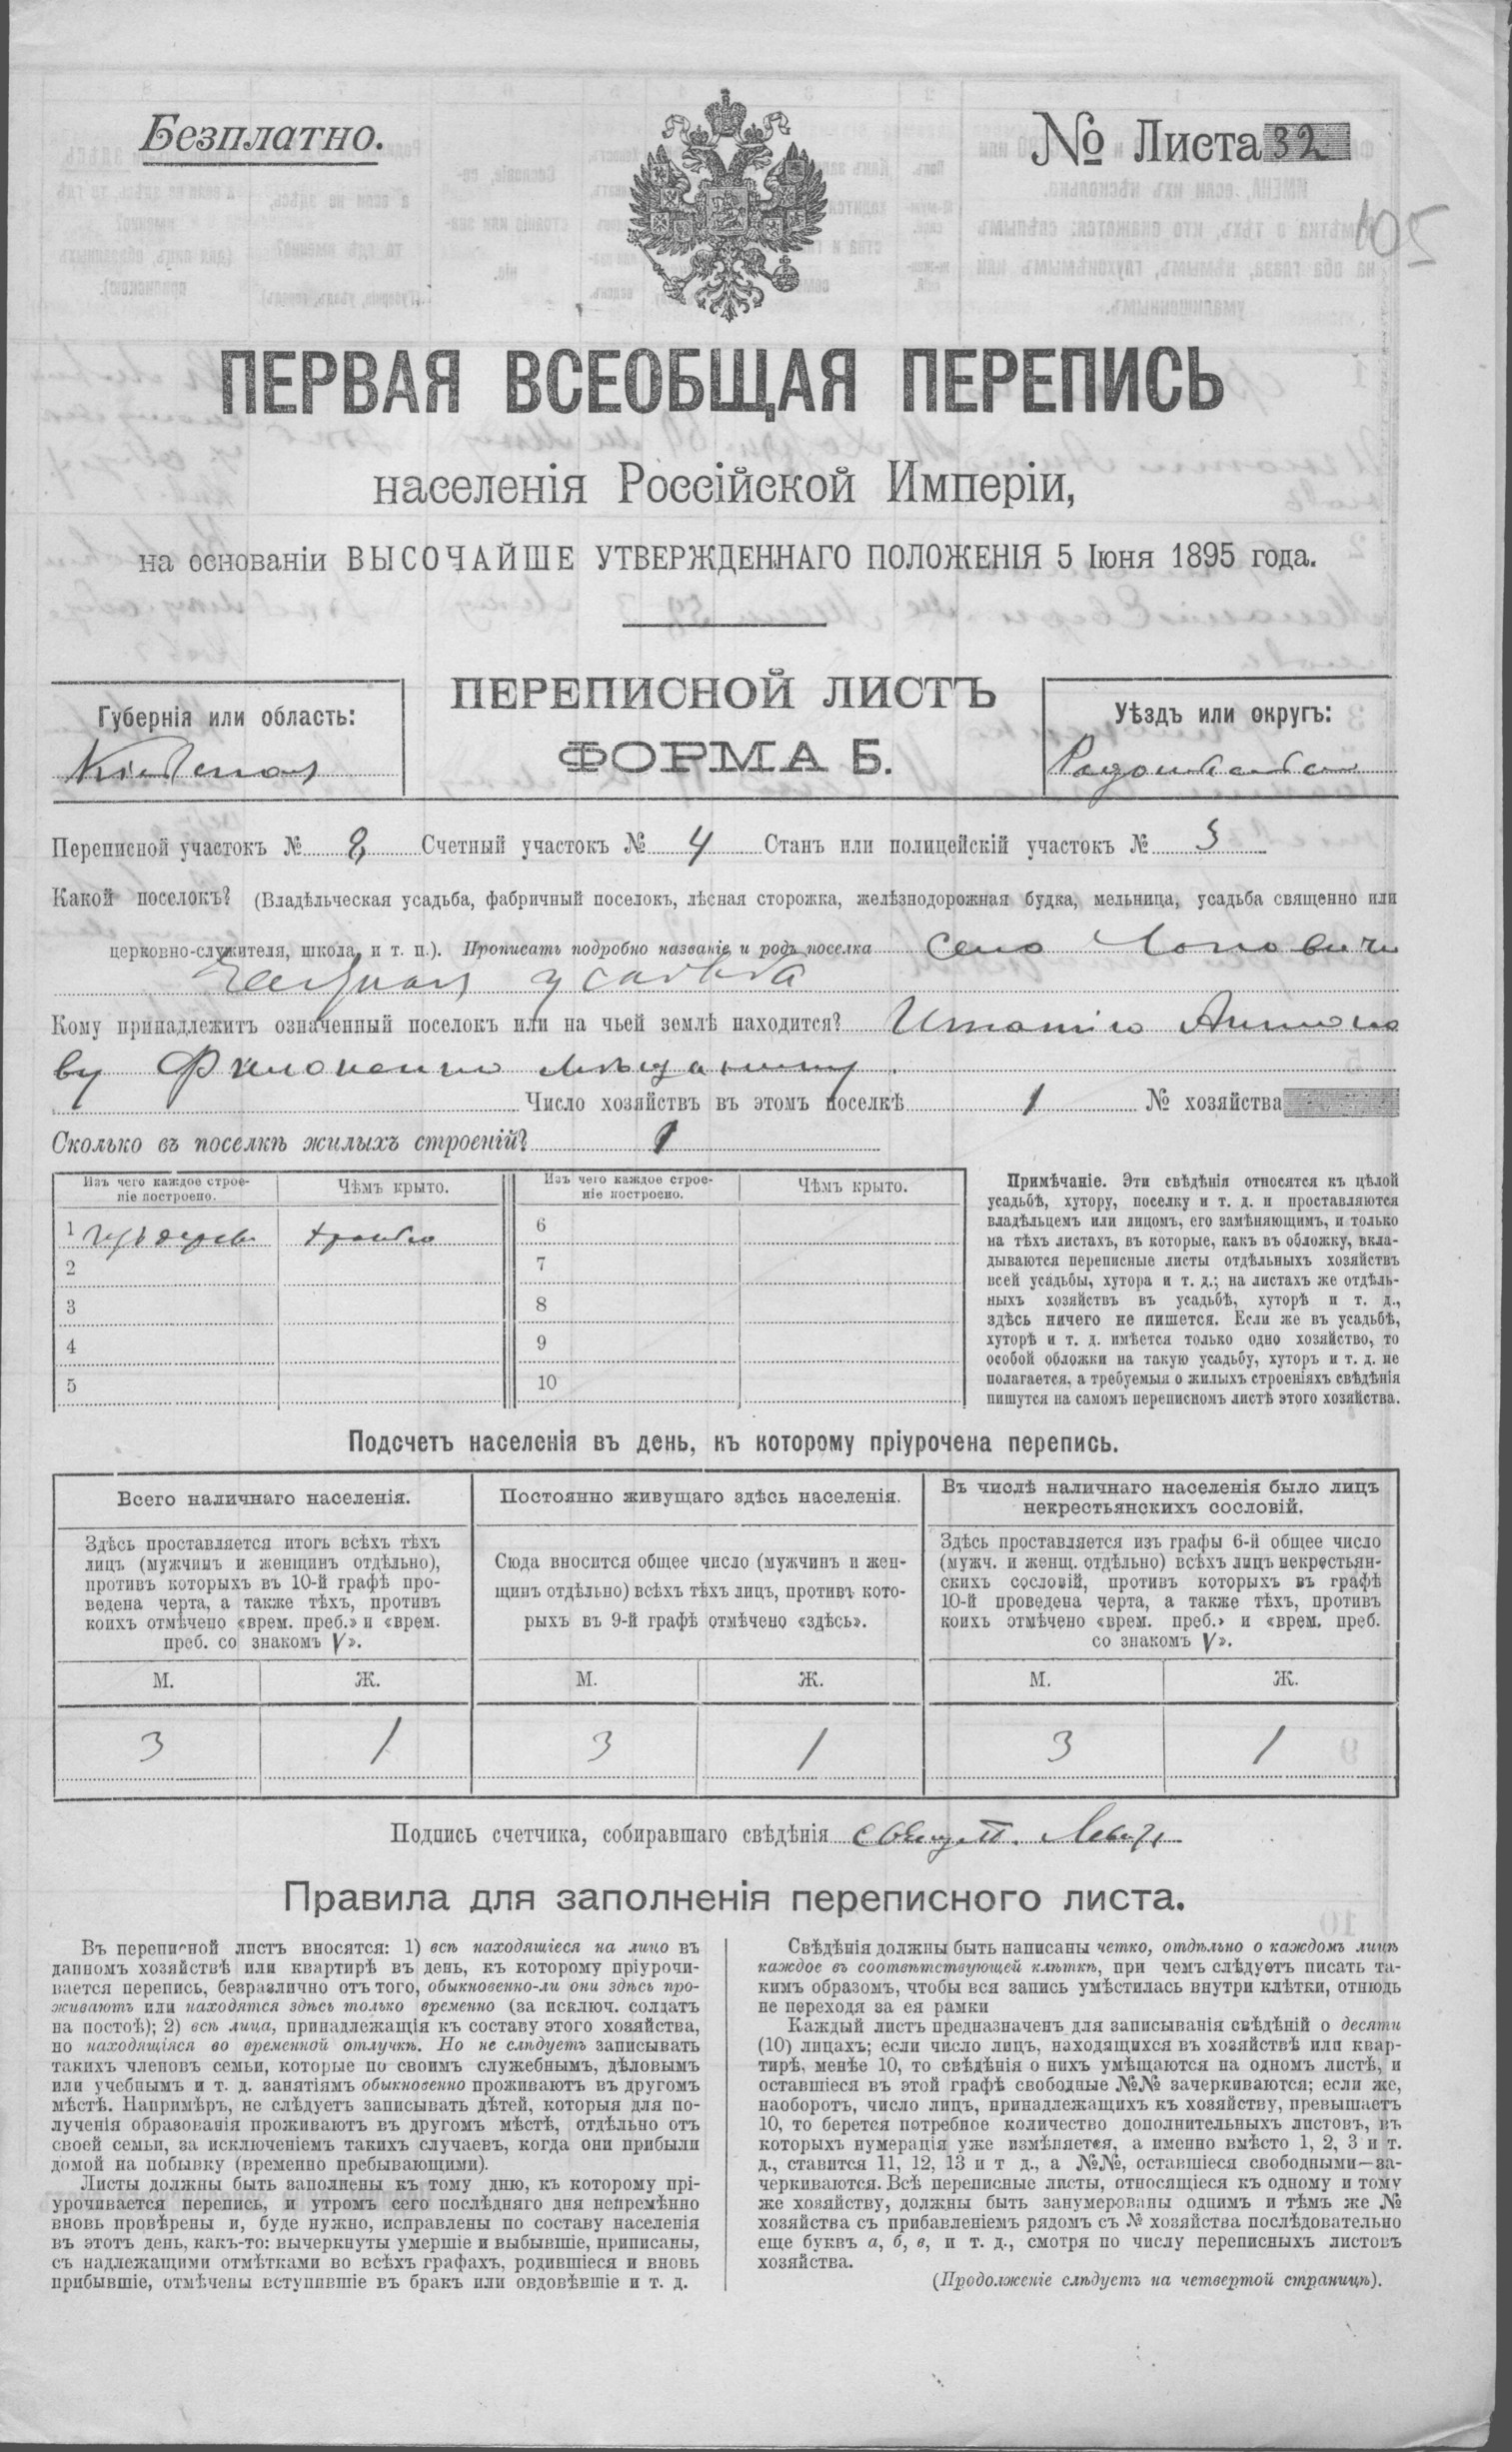 Безплатно.
№ Листа 32
105
ПЕРВАЯ ВСЕОБЩАЯ ПЕРЕПИСЬ
населенія Россійской Имперіи,
на основаніи ВЫСОЧАЙШЕ УТВЕРЖДЕННАГО ПОЛОЖЕНІЯ 5 Іюня 1895 года.
ПЕРЕПИСНОЙ ЛИСТЪ
ФОРМА Б.
Губернія или область:
Кіевская
Уѣздъ или округъ:
Переписной участокъ № 8 Счетный участокъ № 4 Станъ или полицейскій участокъ № 3
Какой поселокъ? (Владѣльческая усадьба, фабричный поселокъ, лѣсная сторожка, желѣзнодорожная будка, мельница, усадьба священно или
церковно-служителя, школа, и т. п.). Прописать подробно названіе и родъ поселка село
усадьба
Кому принадлежитъ означенный поселокъ или на чьей землѣ находится? Игнатію Антоно
ву Филоненко мѣщанину.
Число хозяйствъ въ этомъ поселкѣ 1 № хозяйства
Сколько въ поселкѣ жилыхъ строеній? 1
Изъ чего каждое строе-
ніе построено.
Чѣмъ крыто.
Изъ чего каждое строе-
ніе построено.
Чѣмъ крыто.
1
6
2
7
3
8
4
9
5
10
Примѣчаніе. Эти свѣдѣнія относятся къ цѣлой
усадьбѣ, хутору, поселку и т. д. и проставляются
владѣльцемъ или лицомъ, его замѣняющимъ, и только
на тѣхъ листахъ, въ которые, какъ въ обложку, вкла-
дываются переписные листы отдѣльныхъ хозяйствъ
всей усадьбы, хутора и т. д.; на листахъ же отдѣль-
ныхъ хозяйствъ въ усадьбѣ, хуторѣ и т. д.,
здѣсь ничего не пишется. Если же въ усадьбѣ,
хуторѣ и т. д. имѣется только одно хозяйство, то
особой обложки на такую усадьбу, хуторъ и т. д. не
полагается, а требуемыя о жилыхъ строеніяхъ свѣдѣнія
пишутся на самомъ переписномъ листѣ этого хозяйства.
Подсчетъ населенія въ день, къ которому пріурочена перепись.
Всего наличнаго населенія.
Здѣсь проставляется итогъ всѣхъ тѣхъ
лицъ (мужчинъ и женщинъ отдѣльно),
противъ которыхъ въ 10-й графѣ про-
ведена черта, а также тѣхъ, противъ
коихъ отмѣчено «врем. преб.» и «врем.
преб. со знакомъ V».
Постоянно живущаго здѣсь населенія.
Сюда вносится общее число (мужчинъ и жен-
щинъ отдѣльно) всѣхъ тѣхъ лицъ, противъ кото-
рыхъ въ 9-й графѣ отмѣчено «здѣсь».
Въ числѣ наличнаго населенія было лицъ
некрестьянскихъ сословій.
Здѣсь проставляется изъ графы 6-й общее число
(мужч. и женщ. отдѣльно) всѣхъ лицъ некрестьян-
скихъ сословій, противъ которыхъ въ графѣ
10-й проведена черта, а также тѣхъ, противъ
коихъ отмѣчено «врем. преб.» и «врем. преб.
со знакомъ V».
М. Ж. М. Ж. М. Ж.
3 1 3 1 3 1
Подпись счетчика, собиравшаго свѣдѣнія
Правила для заполненія переписного листа.
Въ переписной листъ вносятся: 1) всѣ находящіеся на лицо въ
данномъ хозяйствѣ или квартирѣ въ день, къ которому пріурочи-
вается перепись, безразлично отъ того, обыкновенно-ли они здѣсь про-
живаютъ или находятся здѣсь только временно (за исключ. солдатъ
на постоѣ); 2) всѣ лица, принадлежащія къ составу этого хозяйства,
но находящіяся во временной отлучкѣ. Но не слѣдуетъ записывать
такихъ членовъ семьи, которые по своимъ служебнымъ, дѣловымъ
или учебнымъ и т. д. занятіямъ обыкновенно проживаютъ въ другомъ
мѣстѣ. Напримѣръ, не слѣдуетъ записывать дѣтей, которыя для по-
лученія образованія проживаютъ въ другомъ мѣстѣ, отдѣльно отъ
своей семьи, за исключеніемъ такихъ случаевъ, когда они прибыли
домой на побывку (временно пребывающими).
Листы должны быть заполнены къ тому дню, къ которому прі-
урочивается перепись, и утромъ сего послѣдняго дня непремѣнно
вновь провѣрены и, буде нужно, исправлены по составу населенія
въ этотъ день, какъ-то: вычеркнуты умершіе и выбывшіе, приписаны,
съ надлежащими отмѣтками во всѣхъ графахъ, родившіеся и вновь
прибывшіе, отмѣчены вступившіе въ бракъ или овдовѣвшіе и т. д.
Свѣдѣнія должны быть написаны четко, отдѣльно о каждомъ лицѣ
каждое въ соотвѣтствующей клѣткѣ, при чемъ слѣдуетъ писать та-
кимъ образомъ, чтобы вся запись умѣстилась внутри клѣтки, отнюдь
не переходя за ея рамки
Каждый листъ предназначенъ для записыванія свѣдѣній о десяти
(10) лицахъ; если число лицъ, находящихся въ хозяйствѣ или квар-
тирѣ, менѣе 10, то свѣдѣнія о нихъ умѣщаются на одномъ листѣ, и
оставшіеся въ этой графѣ свободные №№ зачеркиваются; если же,
наоборотъ, число лицъ, принадлежащихъ къ хозяйству, превышаетъ
10, то берется потребное количество дополнительныхъ листовъ, въ
которыхъ нумерація уже измѣняется, а именно вмѣсто 1, 2, 3 и т.
д., ставится 11, 12, 13 и т д., а №№, оставшіеся свободными—за-
черкиваются. Всѣ переписные листы, относящіеся къ одному и тому
же хозяйству, должны быть занумерованы однимъ и тѣмъ же №
хозяйства съ прибавленіемъ рядомъ съ № хозяйства послѣдовательно
еще буквъ а, б, в, и т. д., смотря по числу переписныхъ листовъ
хозяйства.
(Продолженіе слѣдуетъ на четвертой страницѣ).